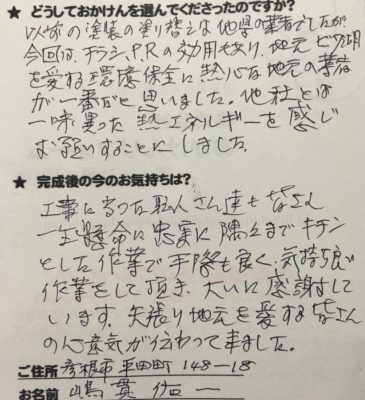 ★ どうしておかけんを選んでくださったのですか?
以前の塗装の塗り替えは他県の業者でしたが
今回は、チラシ、P.Rの効用もあり、地元ビワ湖
を愛する環境保全に熱心な地元の業者
が一番だと思いました。他社とは
一味異った熱エネルギーを感じ
お願いすることにしました。
★ 完成後の今のお気持ちは?
工事に当った職人さん達も皆さん
一生懸命に忠実に隅々までキチン
とした作業で手際も良く、気持ち良い
作業をして頂き、大いに感謝して
います。矢張り地元を愛する皆さん
の心意気が伝わって来ました。
ご住所 彦根市平田町 148-18
お名前